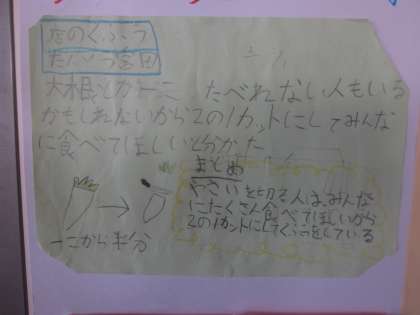 店のくふう
大根とか一こ たべれない人もいる
かもしれないから2の1カットにしてみんな
に食べてほしいと分かった
まとめ
やさいを切る人は、みんな
にたくさん食べてほしいから
2の1カットにしてくふうをしている
一こから半分